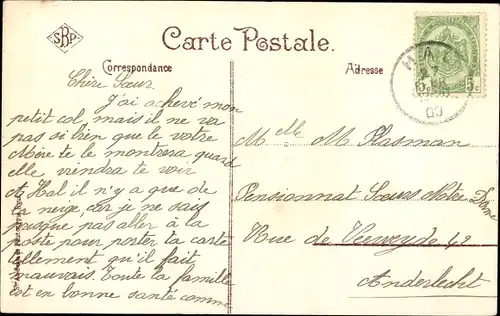 SBP
Carte Postale.
Correspondance
Adresse
Chère Sœur
J'ai achevé mon
petit col, mais il ne va
pas si bien que le vôtre
Mère te le montrera quand
elle viendra te voir
A Hal il n'y a que de
la neige, car je ne sais
presque pas aller à la
poste pour porter la carte
tellement qu'il fait
mauvais. Toute la famille
est en bonne santé comme
Melle M. Plasman
Pensionnat Sœurs Notre Dame
Rue de Veeweyde 42
Anderlecht
HAL
09
5c 5c